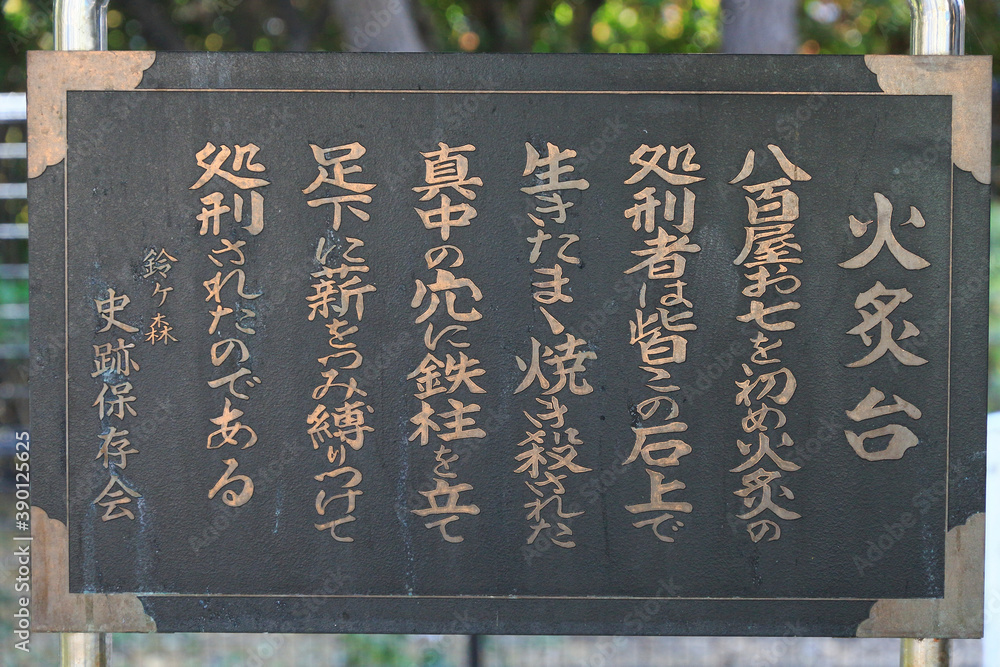 火炙台
八百屋お七を初め火炙の
処刑者は皆この石上で
生きたまゝ焼き殺された
真中の穴に鉄柱を立て
足下に薪をつみ縛りつけて
処刑されたのである
鈴ヶ森
史跡保存会
Adobe Stock | #390125625
Adobe Stock